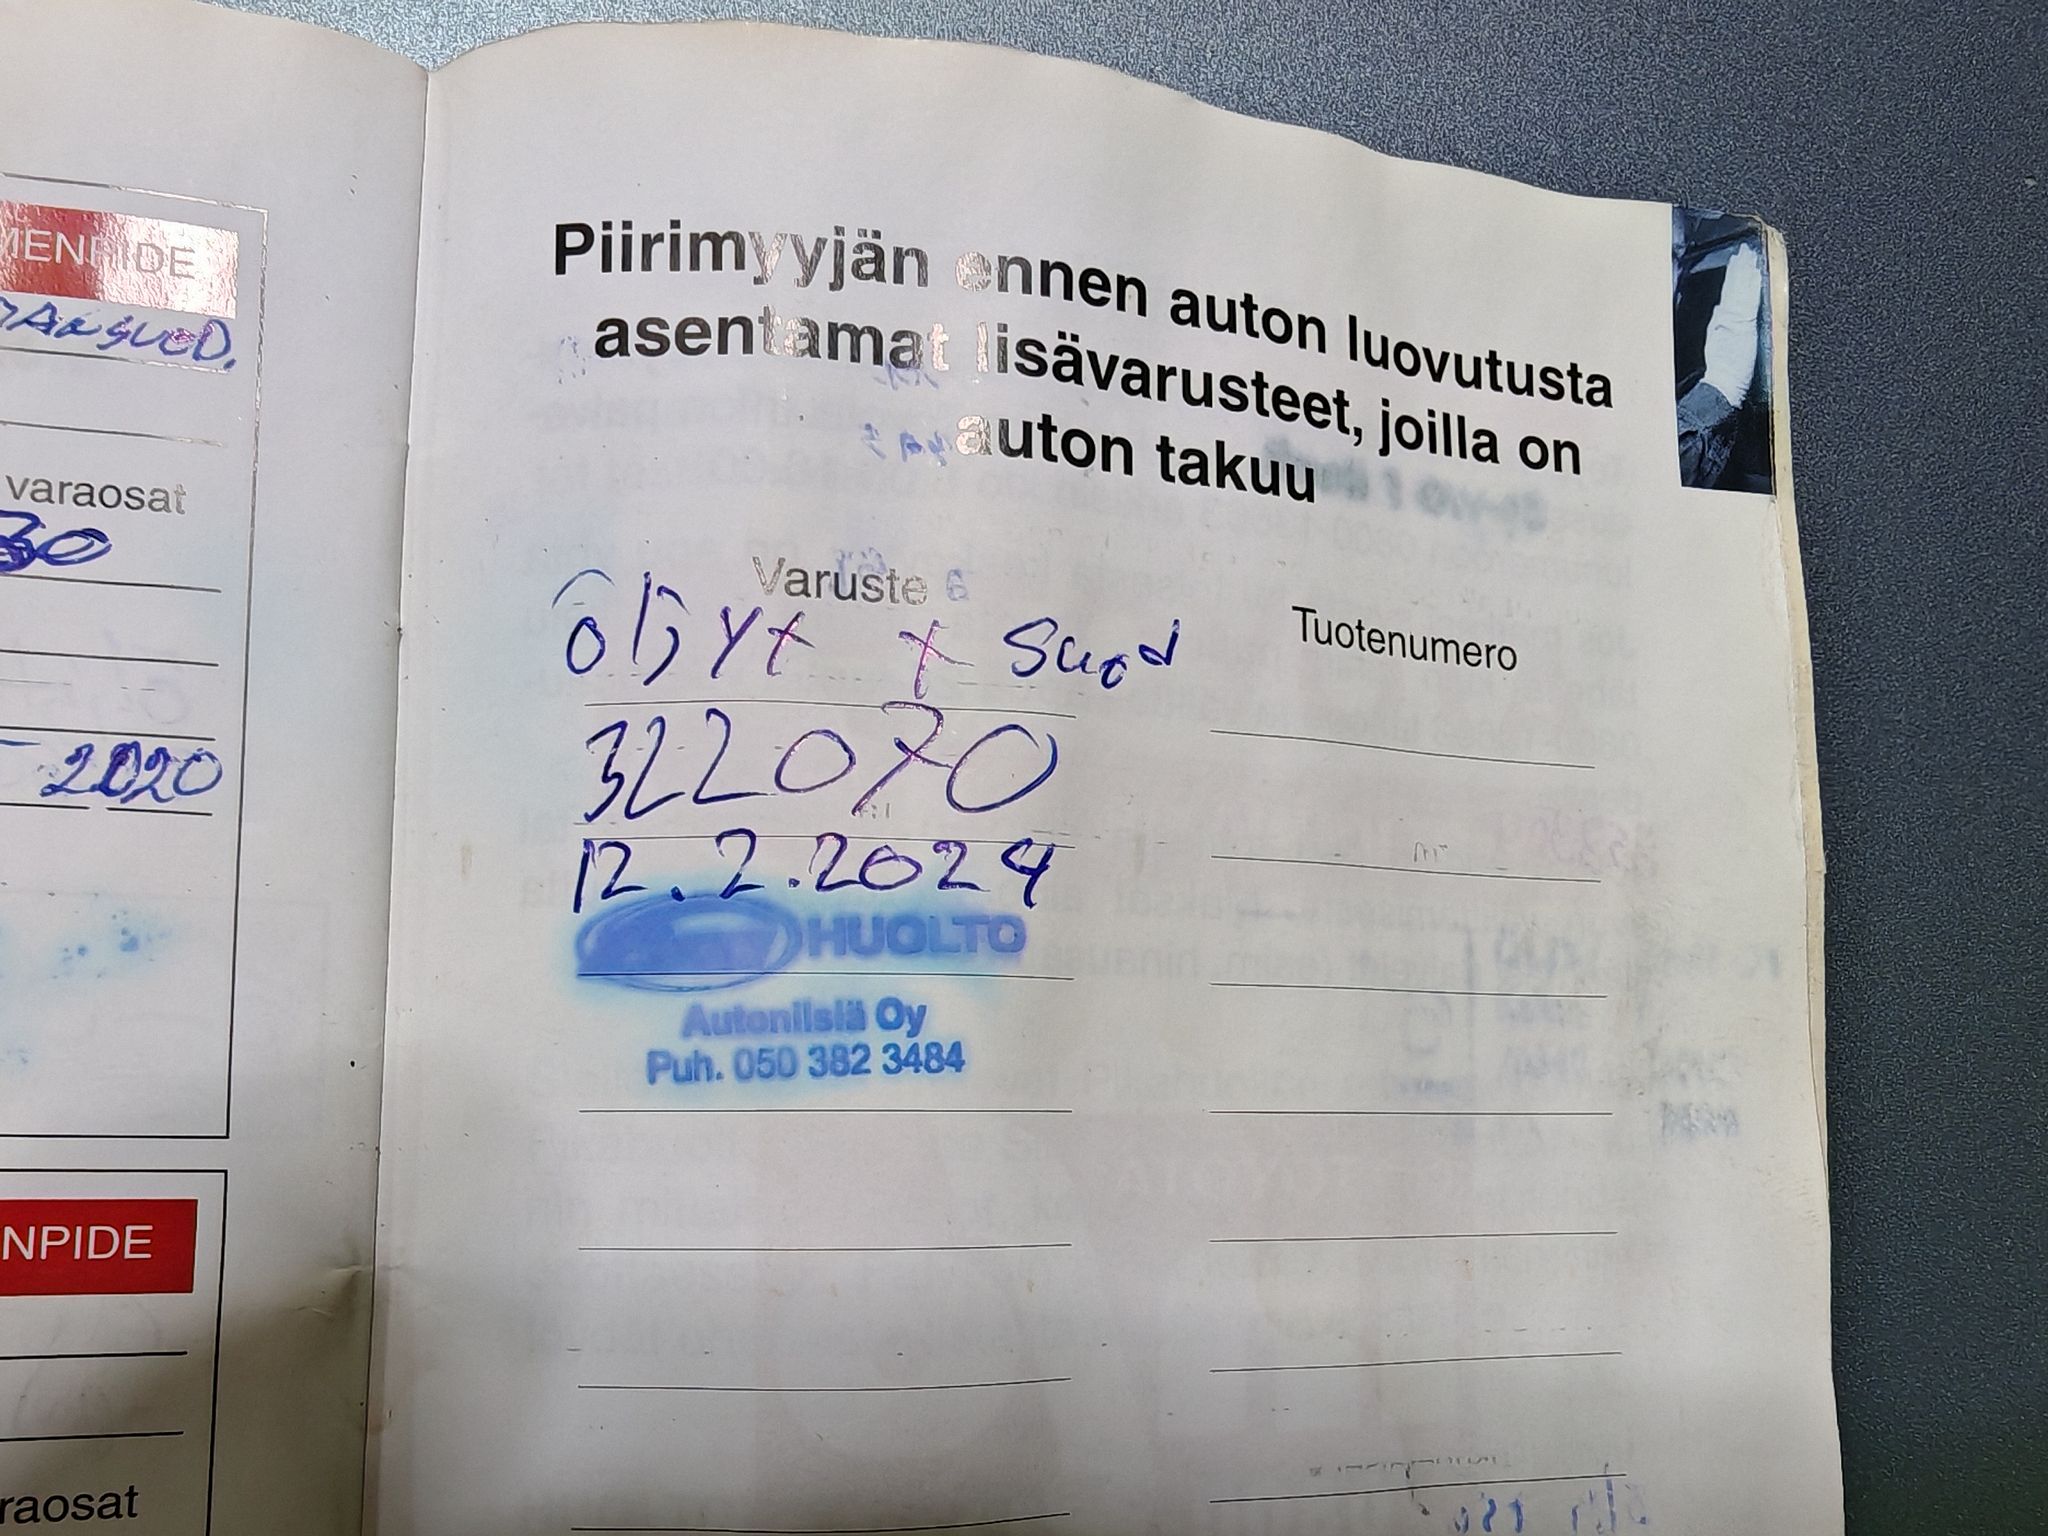 MENPIDE
varaosat
30
2020
NPIDE
raosat
Piirimyyjän ennen auton luovutusta
asentamat lisävarusteet, joilla on
auton takuu
Varuste
Tuotenumero
öljyt + suod
322070
12.2.2024
HUOLTO
Autoniisiä Oy
Puh. 050 382 3484